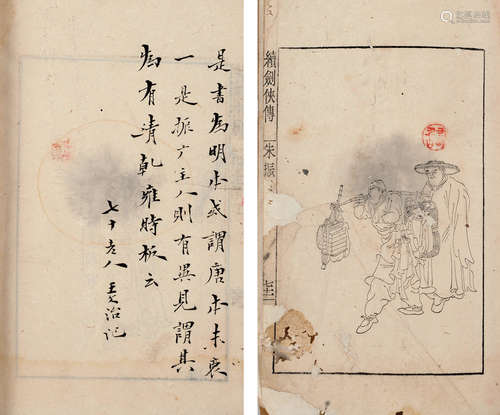 是書為明本或謂唐本未衷
一是振主人則有異見謂其
為有清乾雍時板云
七十老人 治記
續劍俠傳 朱振